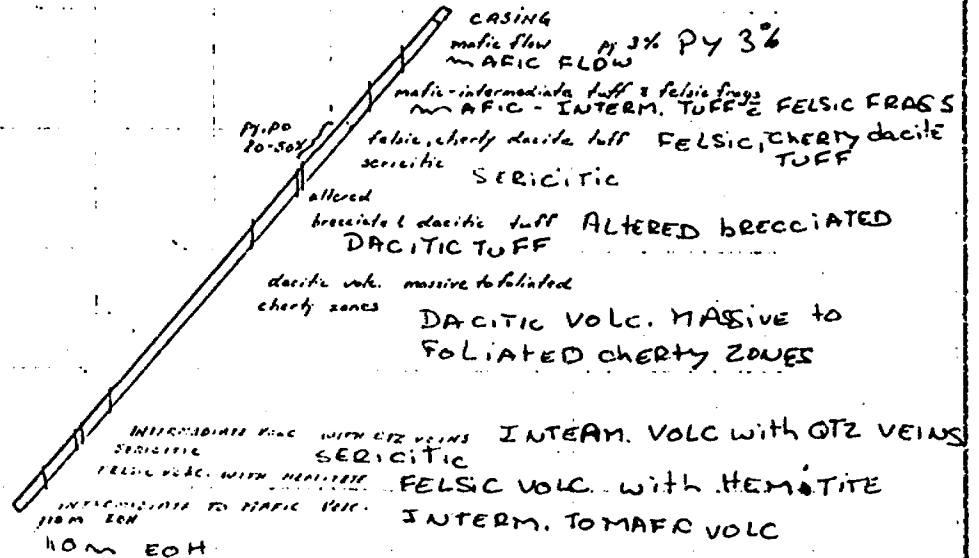 CASING
mafic flow py 3% PY 3%
MAFIC FLOW
mafic-intermediate tuff & felsic frags
MAFIC - INTERM. TUFF & FELSIC FRAGS
py, po
20-50%
felsic, cherty dacite tuff FELSIC, CHERTY dacite
sericitic TUFF
SERICITIC
altered
brecciated dacitic tuff ALTERED BRECCIATED
DACITIC TUFF
dacitic volc. massive to foliated
cherty zones
DACITIC VOLC. MASSIVE to
FOLIATED CHERTY ZONES
INTERMEDIATE VOLC WITH QTZ VEINS INTERM. VOLC with QTZ VEINS
SERICITIC SERICITIC
FELSIC VOLC. WITH HEMATITE FELSIC VOLC. with HEMATITE
INTERMEDIATE TO MAFIC VOLC. INTERM. TO MAFIC VOLC
110m EOH
110m EOH